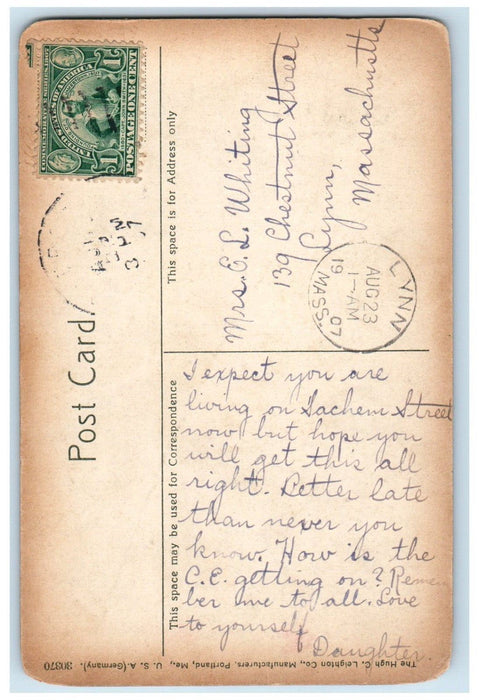 POSTAGE ONE CENT
1 1
Post Card
This space is for Address only
Mrs. E. L. Whiting
139 Chestnut Street
Lynn,
Massachusetts
LYNN
AUG 23
1-AM
19 07
MASS.
This space may be used for Correspondence
I expect you are
living on Sachem Street
now but hope you
will get this all
right. Letter late
than never you
know. How is the
C.E. getting on? Remem
ber me to all. Love
to yourself
Daughter.
The Hugh C. Leighton Co., Manufacturers. Portland, Me., U. S. A. (Germany). 30370